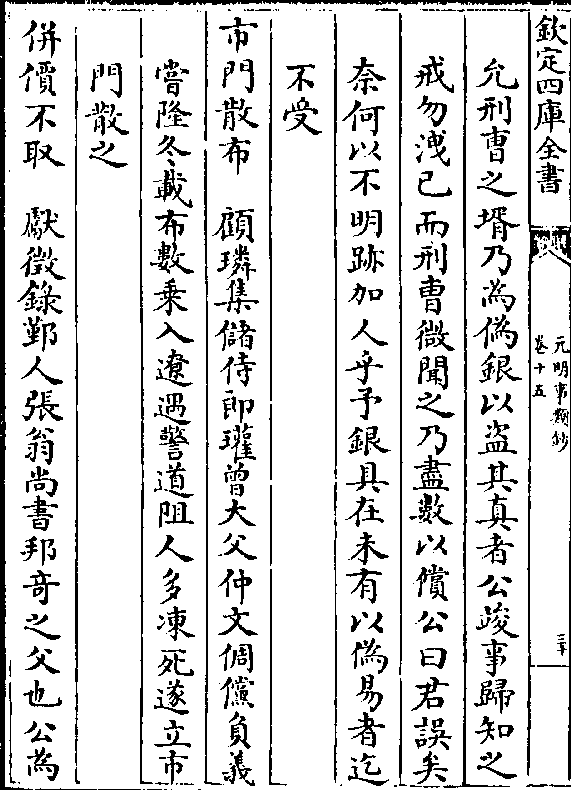 欽定四庫全書
元明事類鈔
卷十五
三十
允刑曹之壻乃為偽銀以盜其真者公竣事歸知之
戒勿洩已而刑曹微聞之乃盡數以償公曰君誤矣
奈何以不明跡加人乎予銀具在未有以偽易者迄
不受
市門散布　顧璘集儲侍郎瓘曾大父仲文倜儻負義
嘗隆冬載布數乗入遼遇警道阻人多凍死遂立市
門散之
併價不取　獻徵錄鄞人張翁尚書邦奇之父也公為